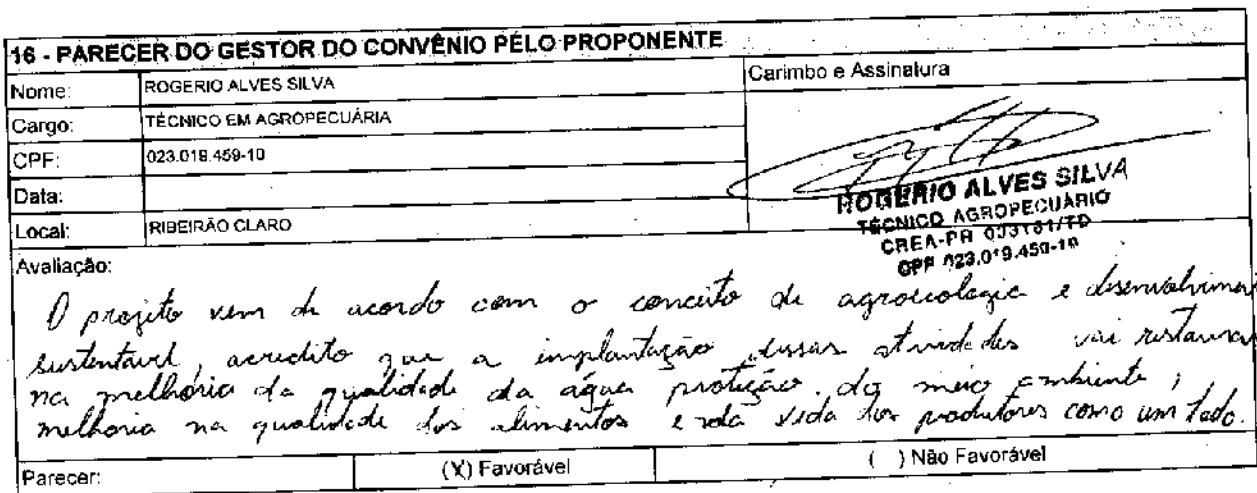 16 - PARECER DO GESTOR DO CONVÊNIO PELO PROPONENTE
Nome: ROGERIO ALVES SILVA
Carimbo e Assinatura
Cargo: TÉCNICO EM AGROPECUÁRIA
CPF: 023.019.459-10
Data:
Local: RIBEIRÃO CLARO
ROGERIO ALVES SILVA
TÉCNICO AGROPECUÁRIO
CREA-PR /TD
CPF 023.019.459-10
Avaliação:
O projeto vem de acordo com o conceito de agroecologia e desenvolvimen
sustentavel, acredito que a implantação dessas atividades vai restaurar
na melhoria da qualidade da água proteção do meio ambiente,
melhoria na qualidade dos alimentos e da vida dos produtores como um todo.
Parecer: (X) Favorável ( ) Não Favorável